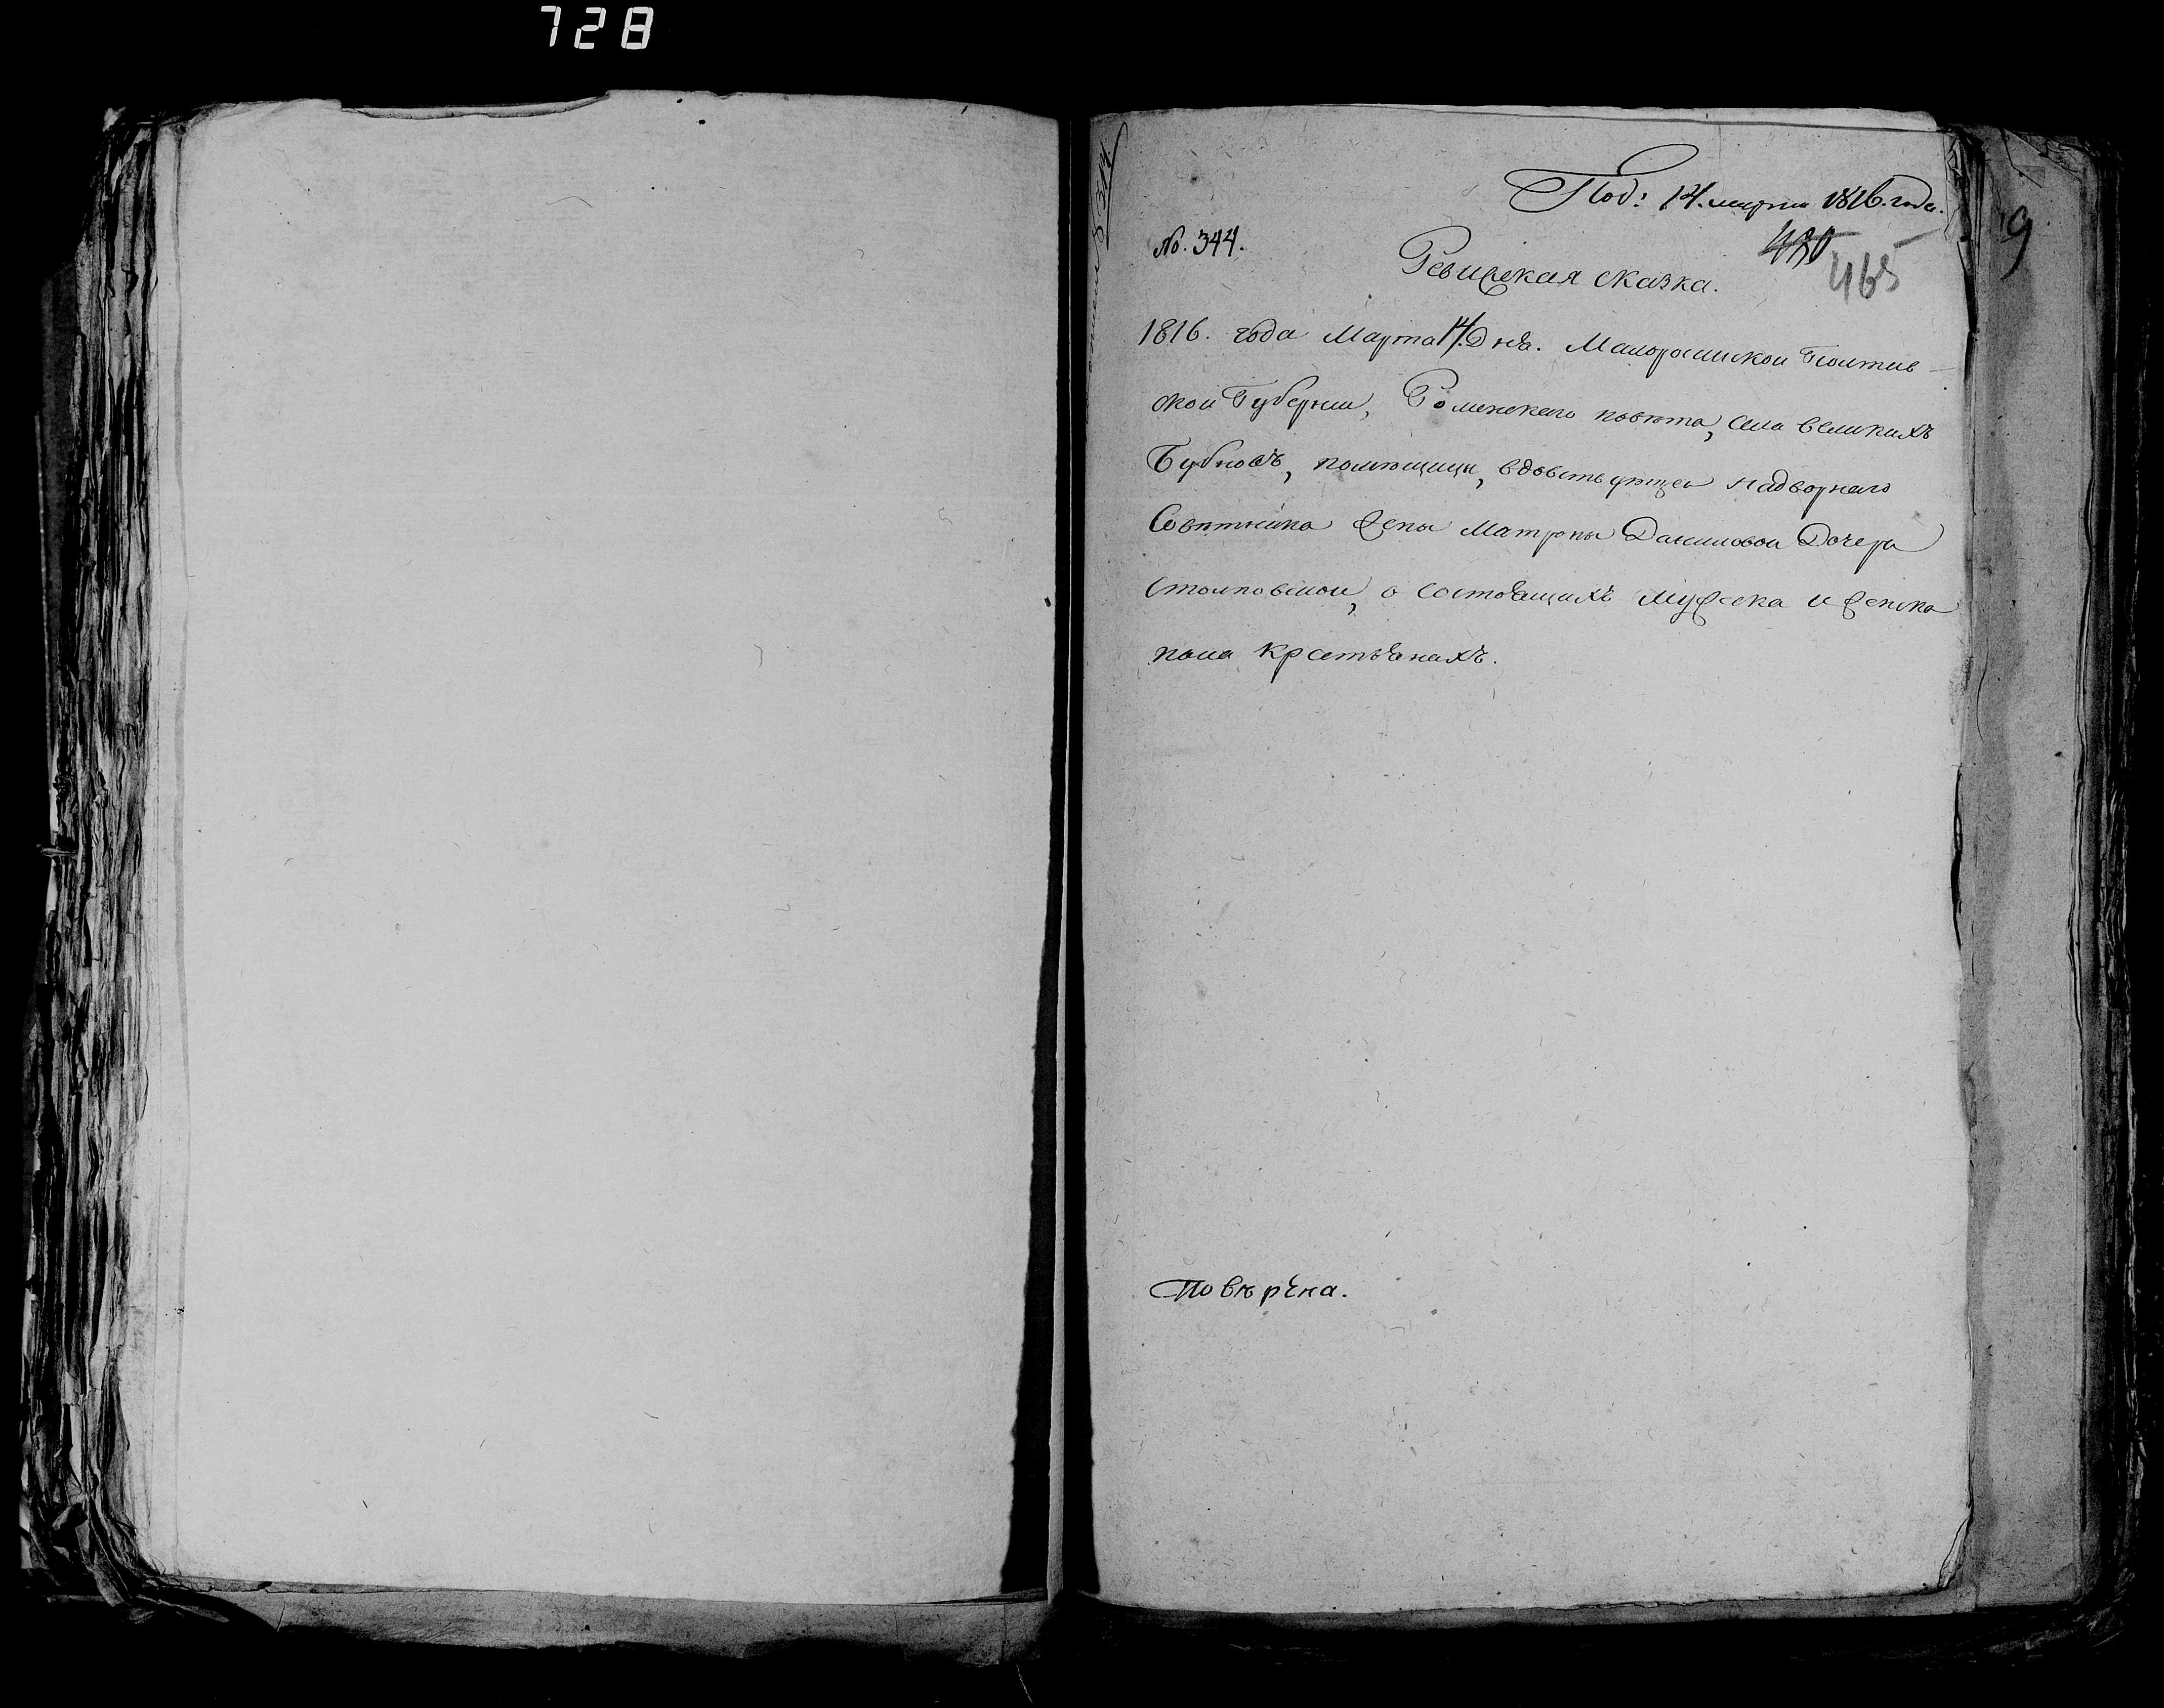 728
Под: 14. марта 1816. года.
No. 344.
430
465
9
Ревиская сказка.
1816. года Марта 14. Дня. Малоросииской Полтав-
ской Губернии, Роменского повѣта, села великихъ
Бубновъ, помѣщицы, вдовствующей надворного
Совѣтника жены Матроны Даниловой Дочери
Столповской, о состоящихъ мужеска и женска
пола крестьянахъ.
Повѣрена.